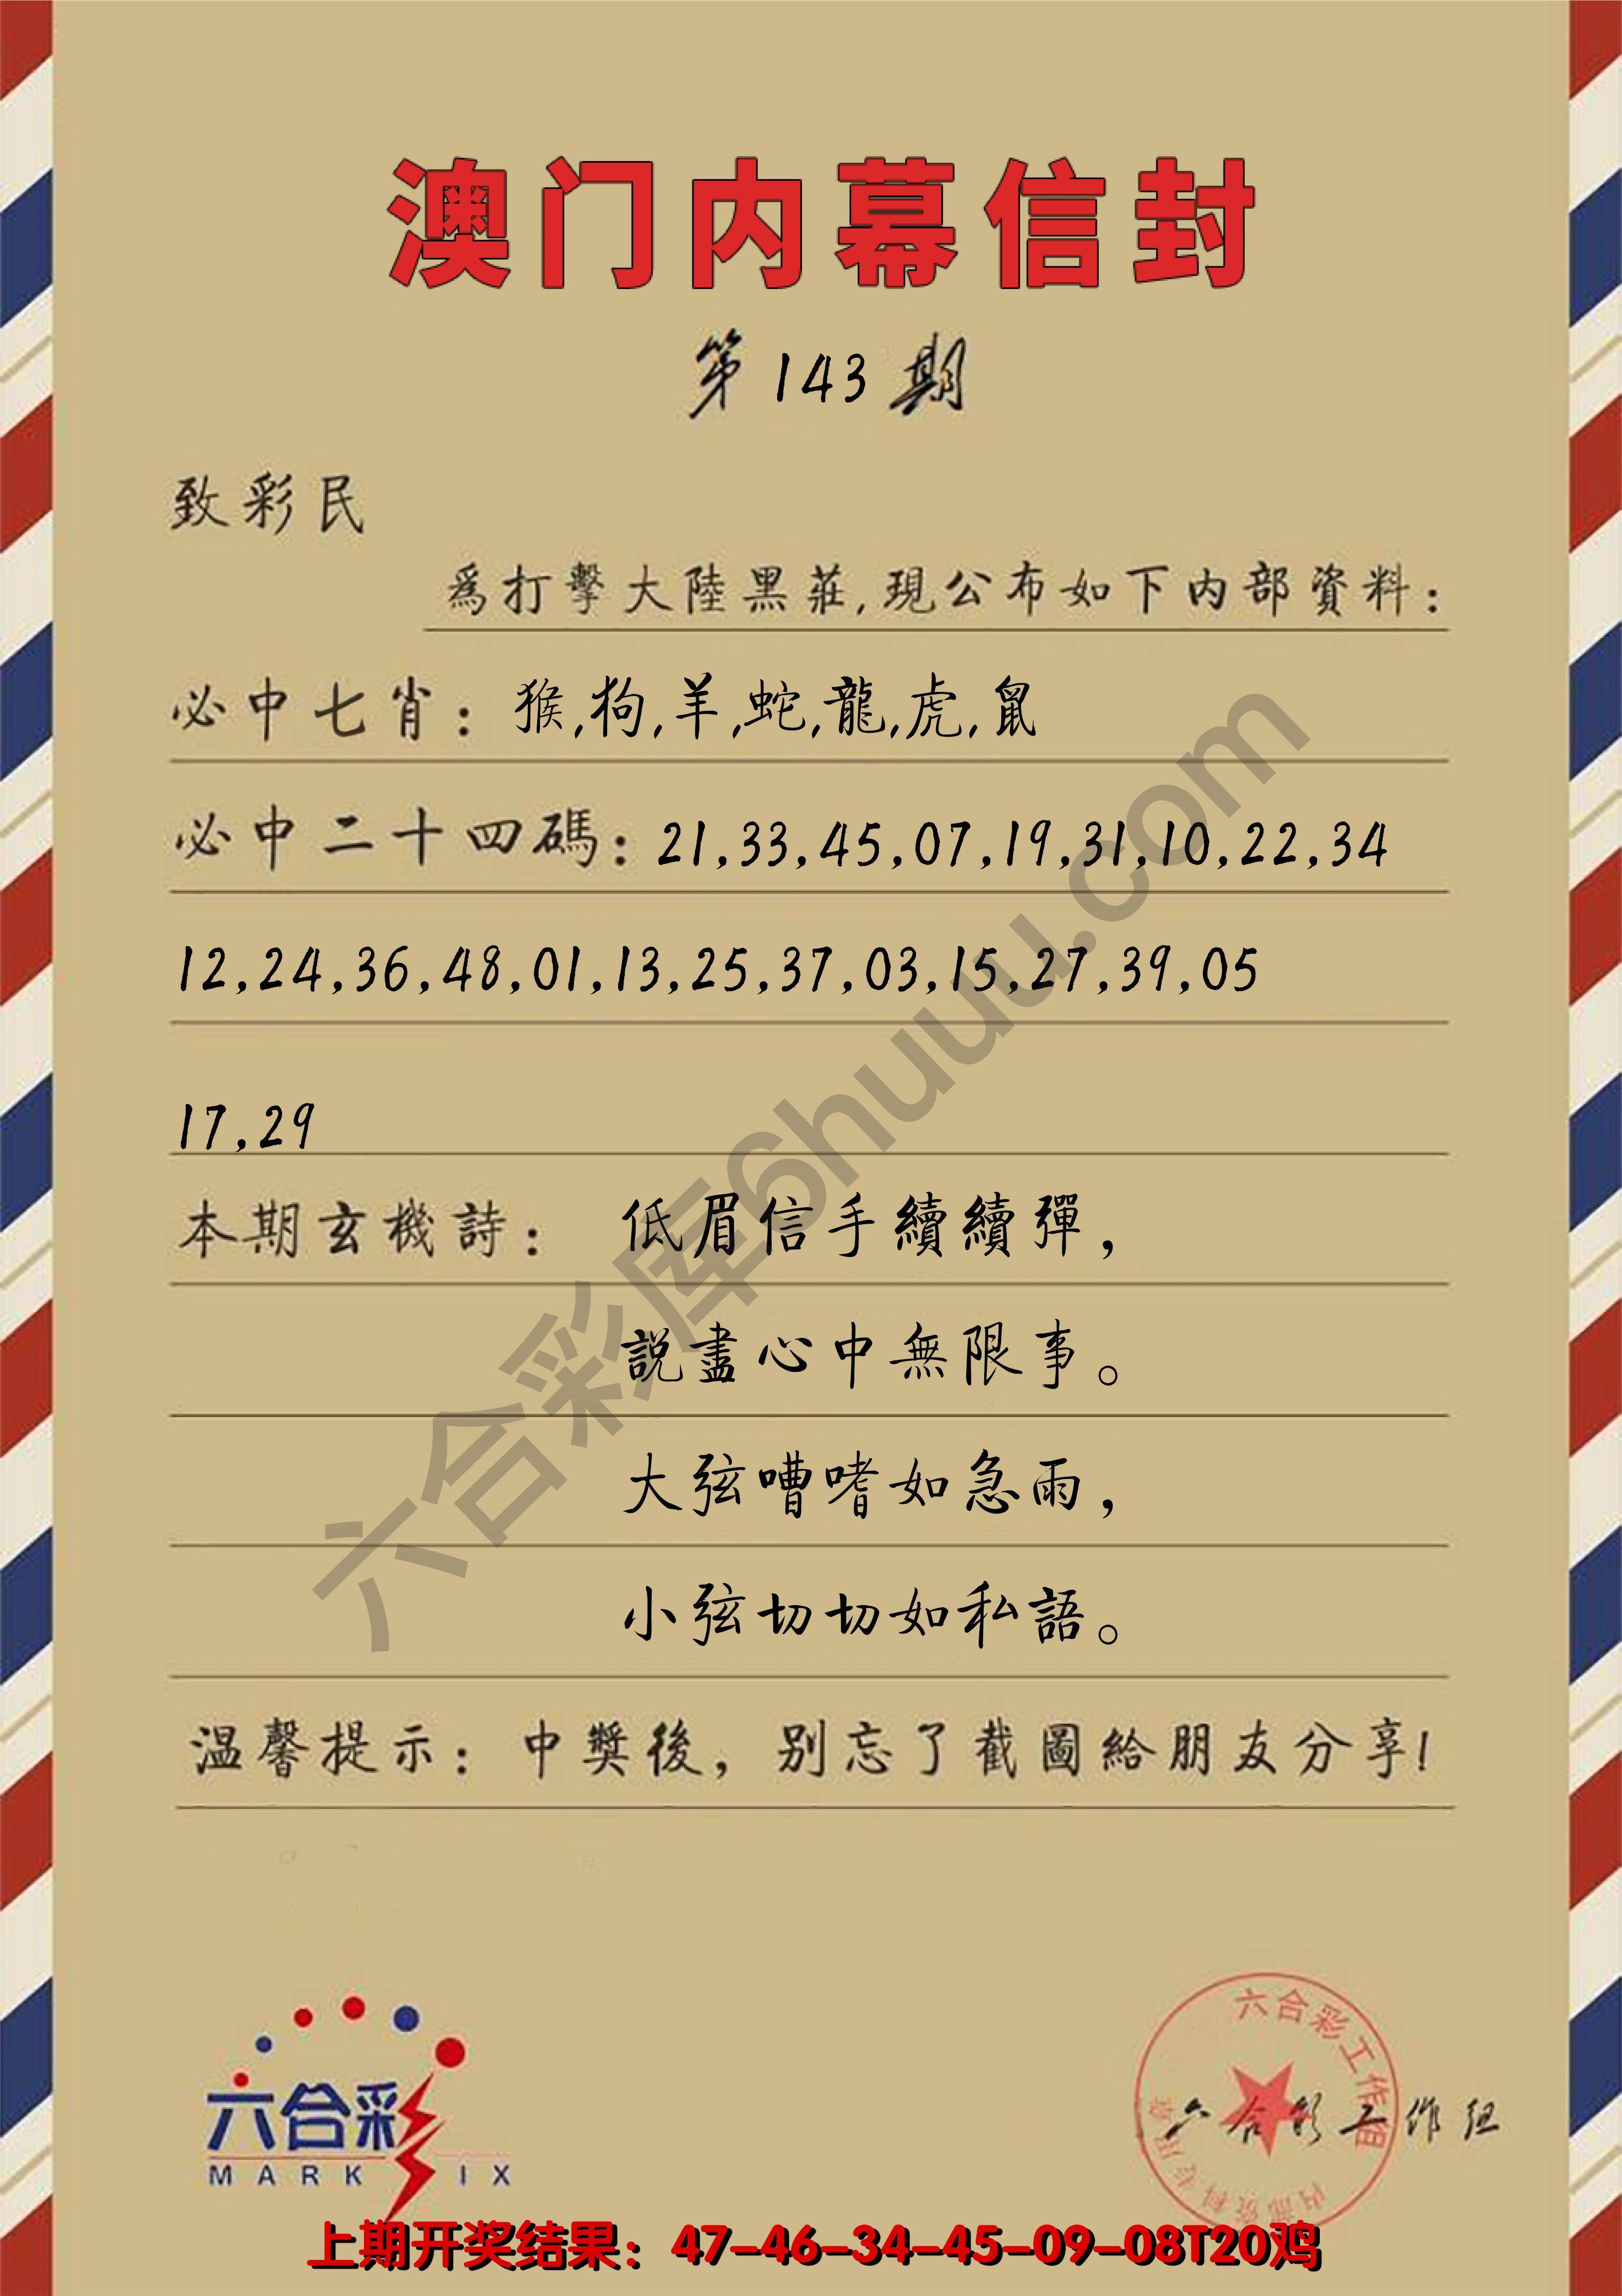 澳门内幕信封
第143期
致彩民
爲打擊大陸黑莊,現公布如下内部資料：
必中七肖：猴,狗,羊,蛇,龍,虎,鼠
必中二十四碼：21,33,45,07,19,31,10,22,34
12,24,36,48,01,13,25,37,03,15,27,39,05
17,29
本期玄機詩：低眉信手續續彈，
説盡心中無限事。
大弦嘈嗜如急雨，
小弦切切如私語。
温馨提示：中獎後，别忘了截圖給朋友分享!
六合彩库6huuu.com
六合彩
MARK IX
六合彩工作组
内部资料专用章
六合彩工作组
上期开奖结果：47-46-34-45-09-08T20鸡